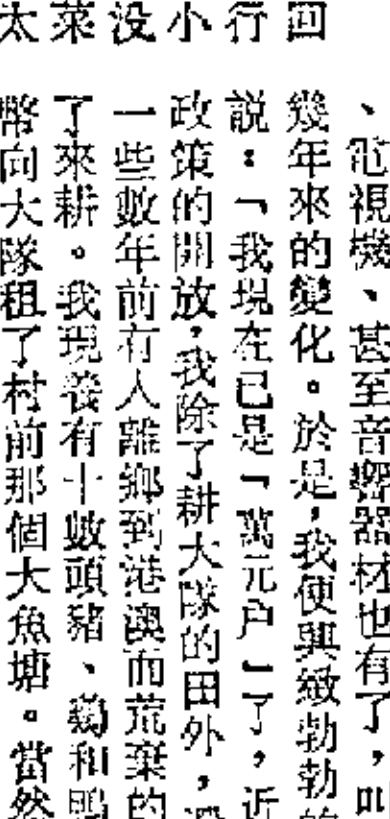 回
行
小
没
菜
太
、電視機、甚至音響器材也有了，叫
幾年來的變化。於是，我便興緻勃勃的
説：「我現在已是「萬元戶」了，近
政策的開放，我除了耕大隊的田外，還
一些數年前有人離鄉到港澳而荒棄的
了來耕。我現養有十數頭豬、鷄和鴨
幣向大隊租了村前那個大魚塘。當然